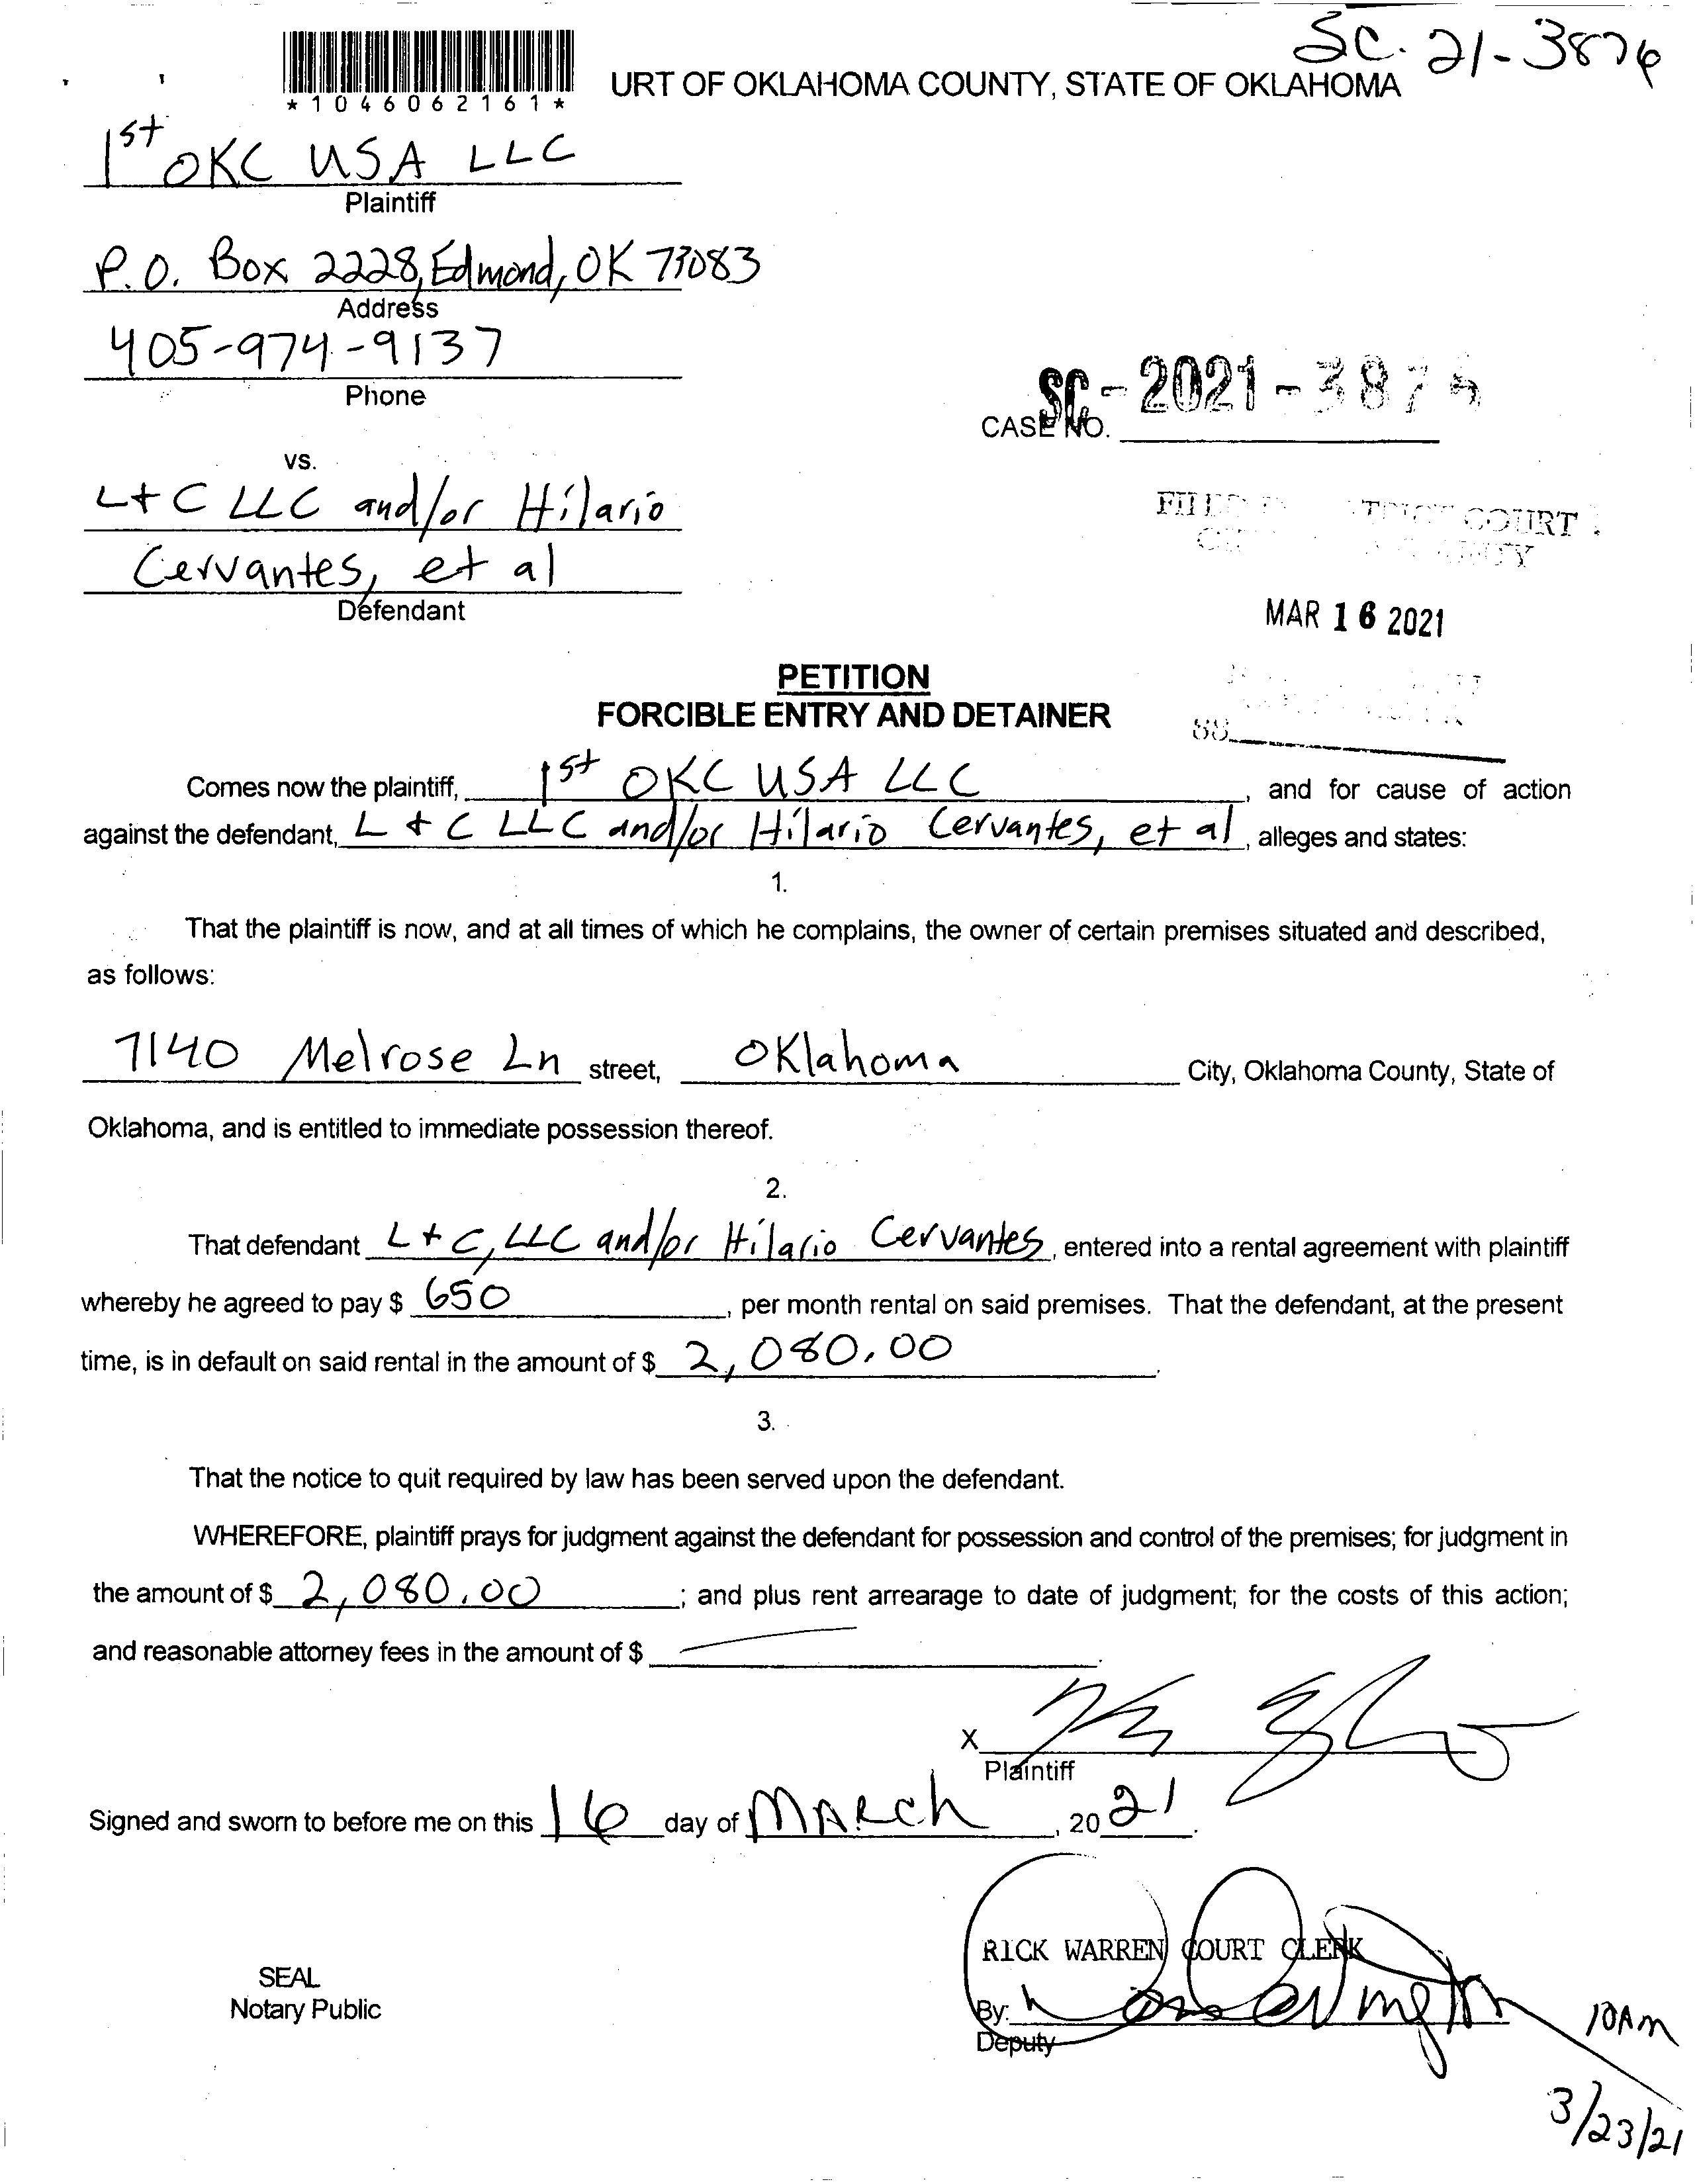 SC-21-3876
*1046062161*
URT OF OKLAHOMA COUNTY, STATE OF OKLAHOMA
1st OKC USA LLC
Plaintiff
P.O. Box 2228, Edmond, OK 73083
Address
405-974-9137
Phone
SC-2021-387
CASE NO.
vs.
L+C LLC and/or Hilario
Cervantes, et al
Defendant
COURT
MAR 16 2021
PETITION
FORCIBLE ENTRY AND DETAINER
Comes now the plaintiff, 1st OKC USA LLC, and for cause of action
against the defendant, L + C LLC and/or Hilario Cervantes, et al, alleges and states:
1.
That the plaintiff is now, and at all times of which he complains, the owner of certain premises situated and described,
as follows:
7140 Melrose Ln street, Oklahoma City, Oklahoma County, State of
Oklahoma, and is entitled to immediate possession thereof.
2.
That defendant L + C, LLC and/or Hilario Cervantes, entered into a rental agreement with plaintiff
whereby he agreed to pay $ 650, per month rental on said premises. That the defendant, at the present
time, is in default on said rental in the amount of $ 2,080.00.
3.
That the notice to quit required by law has been served upon the defendant.
WHEREFORE, plaintiff prays for judgment against the defendant for possession and control of the premises; for judgment in
the amount of $ 2,080.00; and plus rent arrearage to date of judgment; for the costs of this action;
and reasonable attorney fees in the amount of $
X
Plaintiff
Signed and sworn to before me on this 16 day of MARch, 20 21.
RICK WARREN COURT CLERK
SEAL
Notary Public
By:
Deputy
10AM
3/23/21